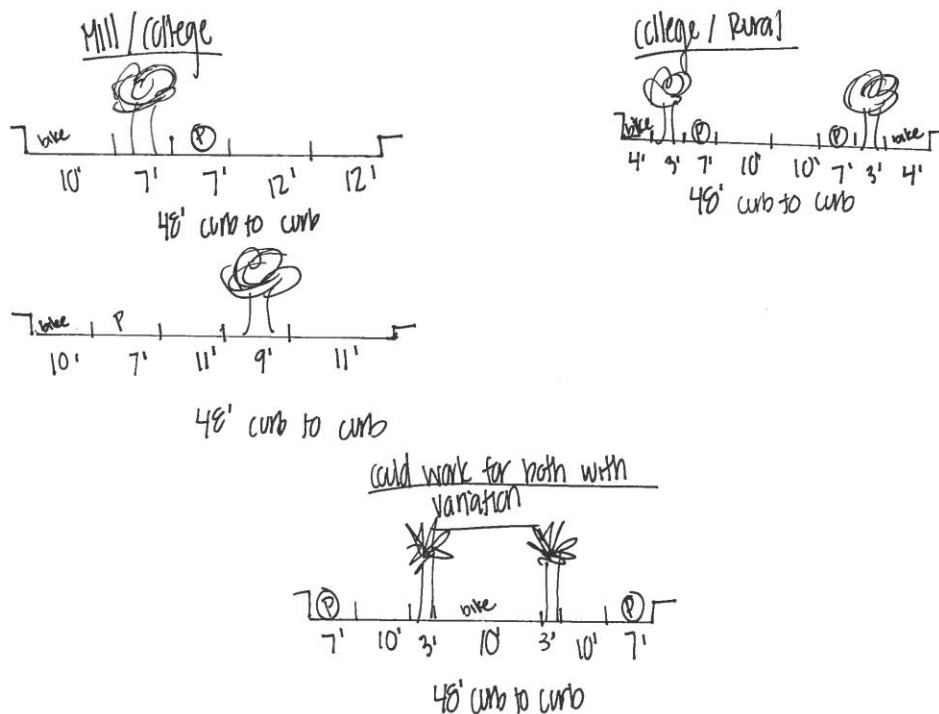 Mill / College
bike P
10' 7' 7' 12' 12'
48' curb to curb
bike P
10' 7' 11' 9' 11'
48' curb to curb
College / Rural
bike P P bike
4' 3' 7' 10' 10' 7' 3' 4'
48' curb to curb
could work for both with
variation
P bike P
7' 10' 3' 10' 3' 10' 7'
48' curb to curb